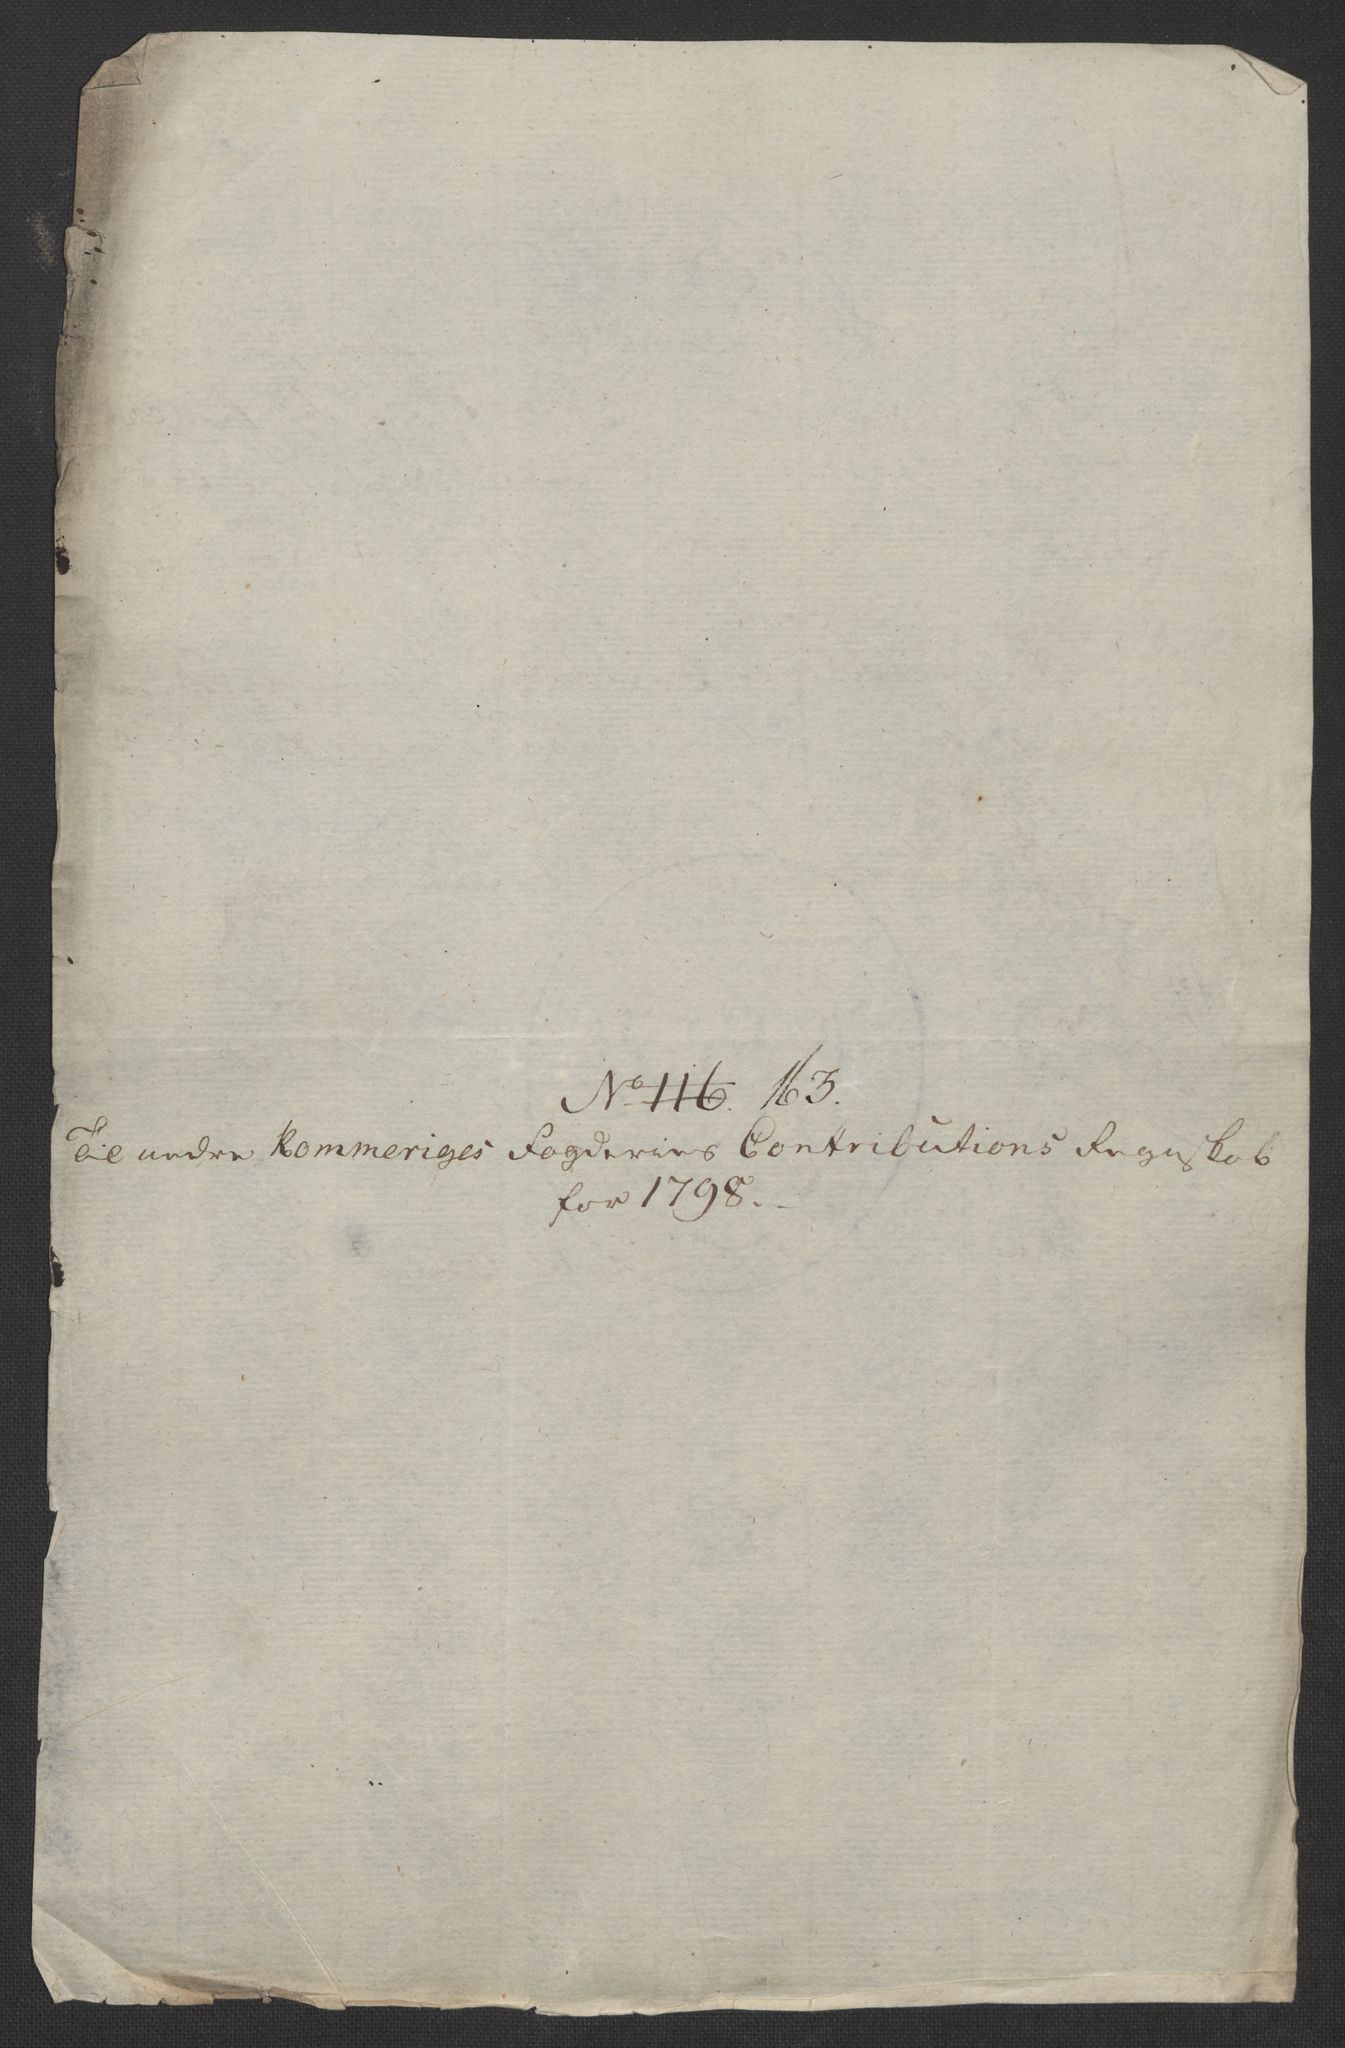 No 116. 163.
Til nedre Rommeriges Fogderies Contributions Regnskab
for 1798.